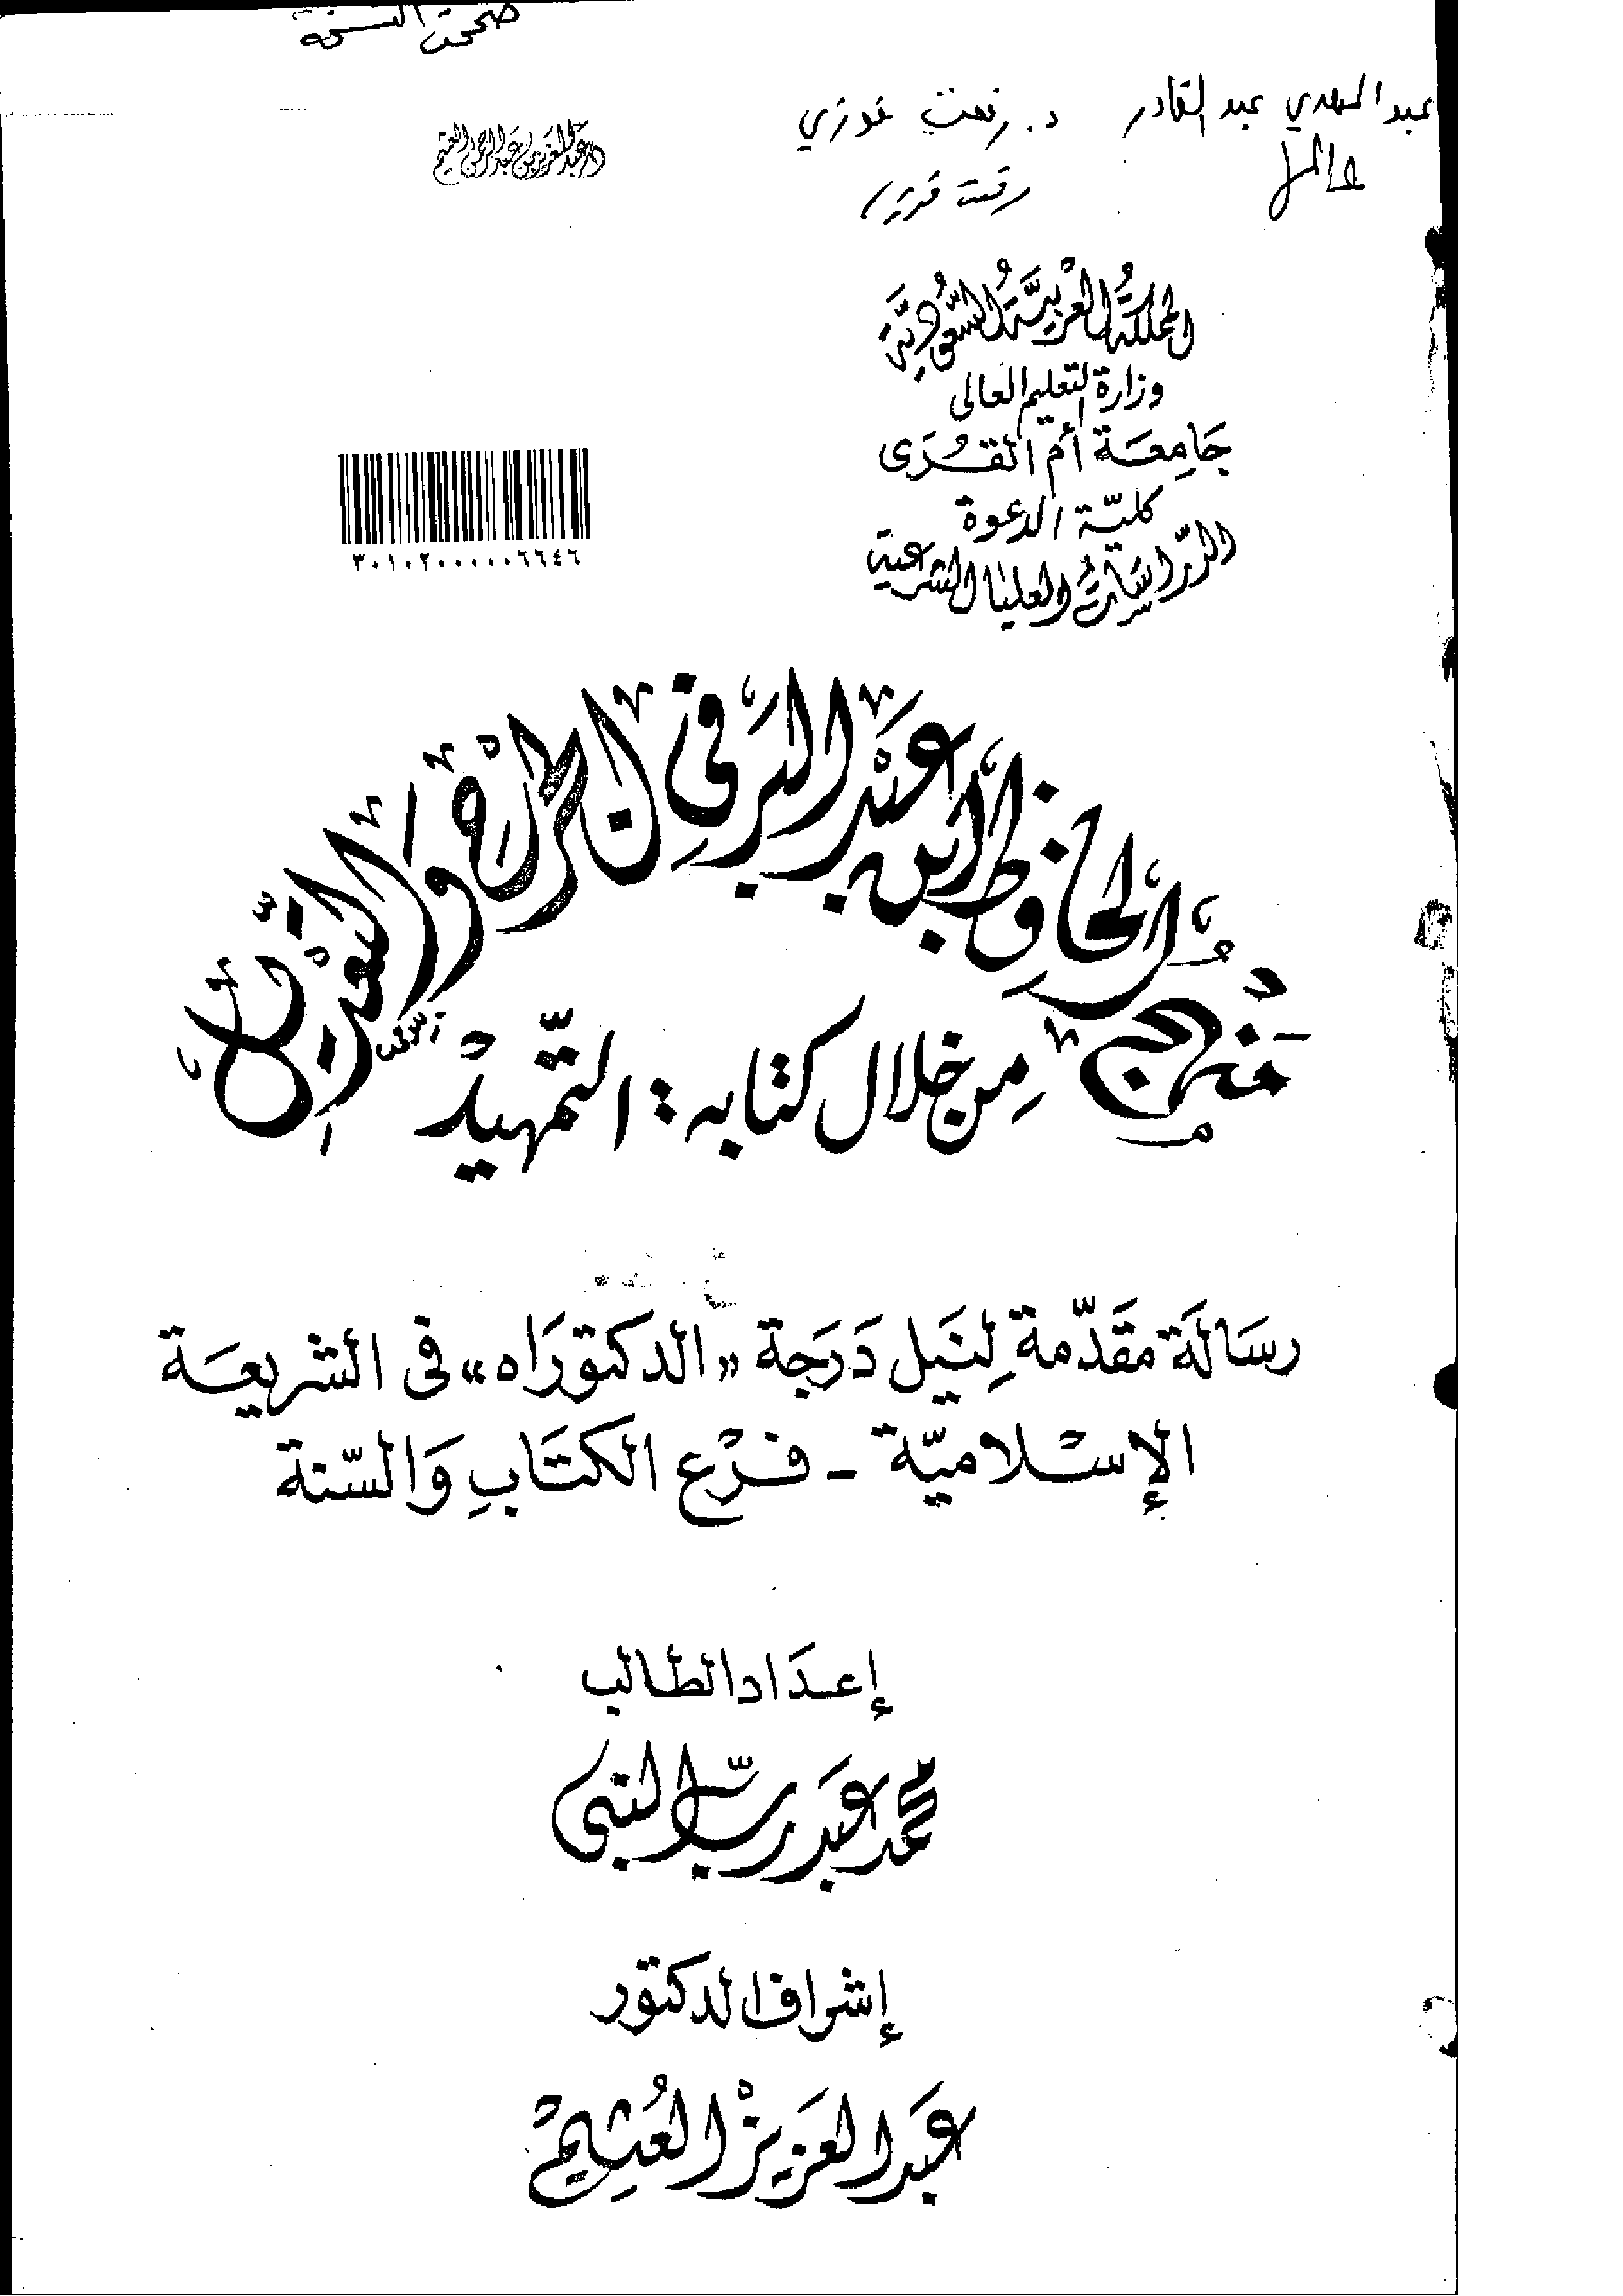 صححت النسخة
عبد المهدي عبد القادر د. رفعت فوزي
د. عبد العزيز بن عبد الرحمن العثيم
المملكة العربيَّة السُّعُوديَّة
وزارة التعليم العالى
جَامِعَة أم القُرَى
كليّة الدعوة
الدّراسَاتُ العليا الشرعية
٣٠١٠٢٠٠٠٠٠٦٦٤٦
مَنْهَجُ الحَافِظ ابن عَبْد البَرِّ فِي الجَرْح وَالتَّعْدِيل
مِن خلال كتابه: التّمهِيدْ
رسَالَة مقَدّمة لِنَيل دَرَجَة «الدكتورَاه» فى الشريعَة
الإسْلاميّة - فرْع الكتَابِ وَالسّنة
إعدَاد الطالب
محمد عَبد ربّ النبى
إشراف الدكتور
عَبد العَزيزْ العُثِيمْ